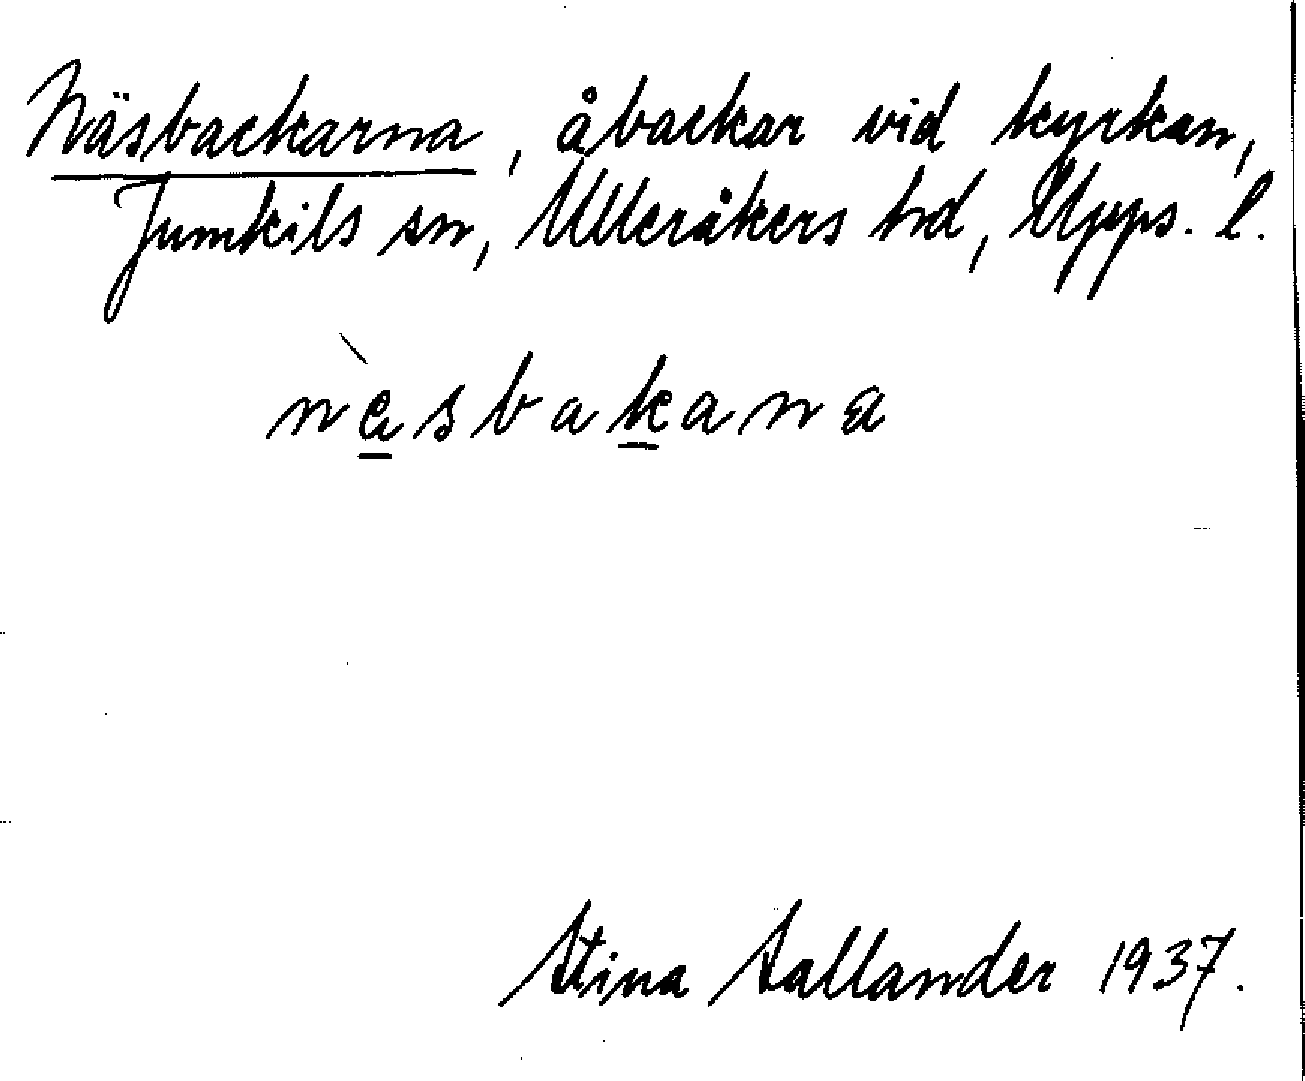 Näsbackarna, åbackar vid kyrkan,
Jumkils sn, Ulleråkers hd, Upps. l.
nὲsbakana
Stina Sallander 1937.